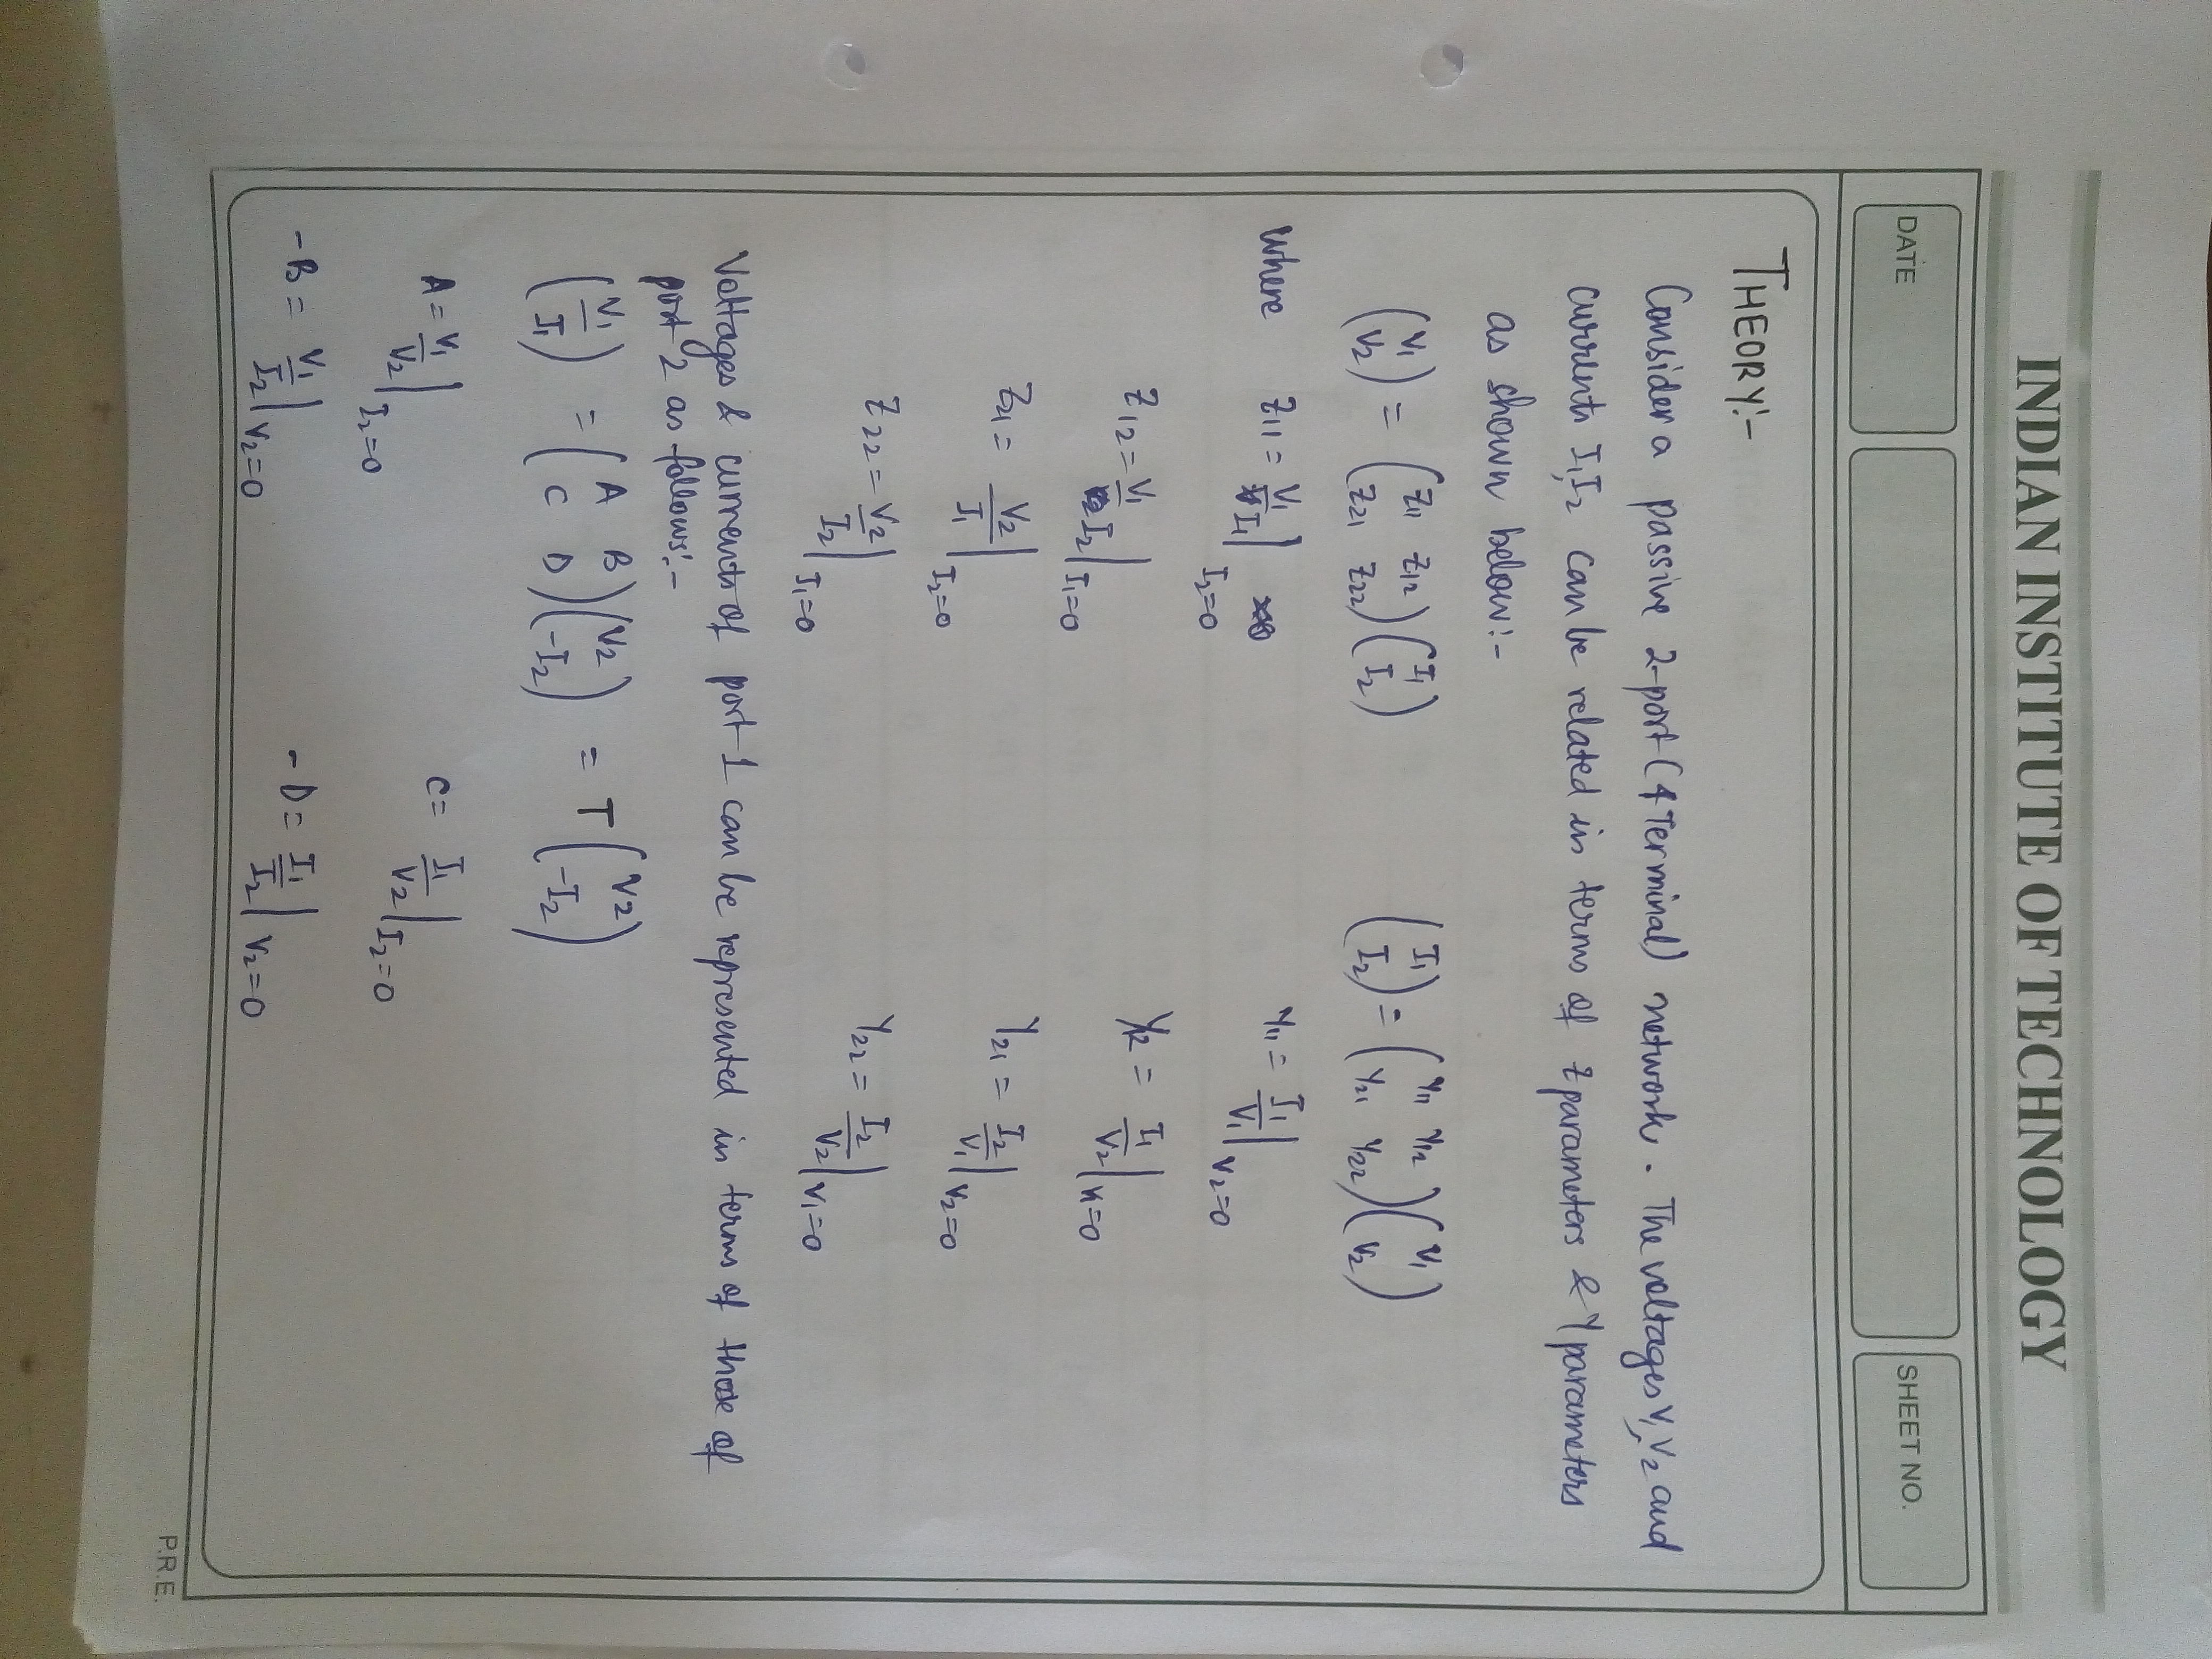 INDIAN INSTITUTE OF TECHNOLOGY
DATE
SHEET NO.
THEORY:-
Consider a passive 2-port (4 Terminal) network. The voltages V₁, V₂ and
currents I₁, I₂ can be related in terms of Z parameters & Y parameters
as shown below:-
(V₁ V₂) = (Z₁₁ Z₁₂ Z₂₁ Z₂₂)(I₁ I₂)
(I₁ I₂) = (Y₁₁ Y₁₂ Y₂₁ Y₂₂)(V₁ V₂)
where Z₁₁ = V₁/I₁ | I₂=0
Y₁₁ = I₁/V₁ | V₂=0
Z₁₂ = V₁/I₂ | I₁=0
Y₁₂ = I₁/V₂ | V₁=0
Z₂₁ = V₂/I₁ | I₂=0
Y₂₁ = I₂/V₁ | V₂=0
Z₂₂ = V₂/I₂ | I₁=0
Y₂₂ = I₂/V₂ | V₁=0
Voltages & currents of port 1 can be represented in terms of those of
port 2 as follows:-
(V₁/I₁) = (A B C D)(V₂ -I₂) = T(V₂ -I₂)
A = V₁/V₂ | I₂=0
C = I₁/V₂ | I₂=0
-B = V₁/I₂ | V₂=0
-D = I₁/I₂ | V₂=0
P.R.E.